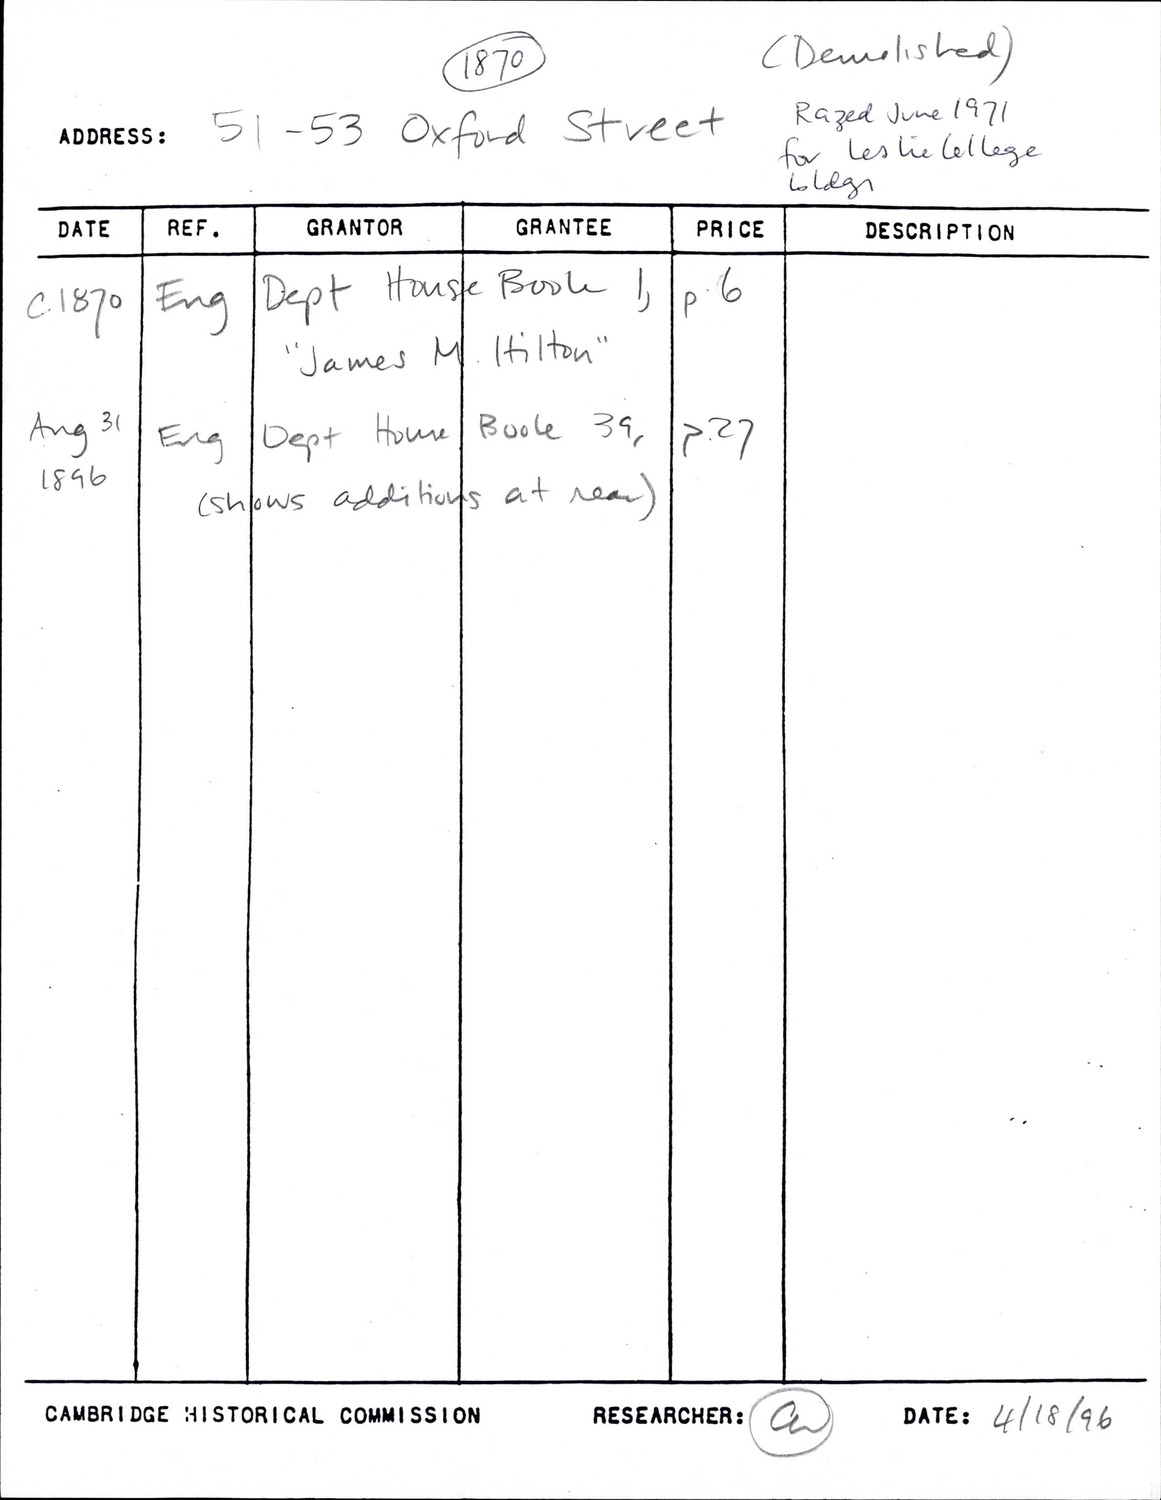 1870
(Demolished)
ADDRESS: 51-53 Oxford Street
Razed June 1971
for Leslie College
bldgs
DATE REF. GRANTOR GRANTEE PRICE DESCRIPTION
C.1870 Eng Dept House Book 1, p.6
"James M. Hilton"
Aug 31 Eng Dept House Book 39, p.27
1896
(shows additions at rear)
CAMBRIDGE HISTORICAL COMMISSION RESEARCHER: DATE: 4/18/96